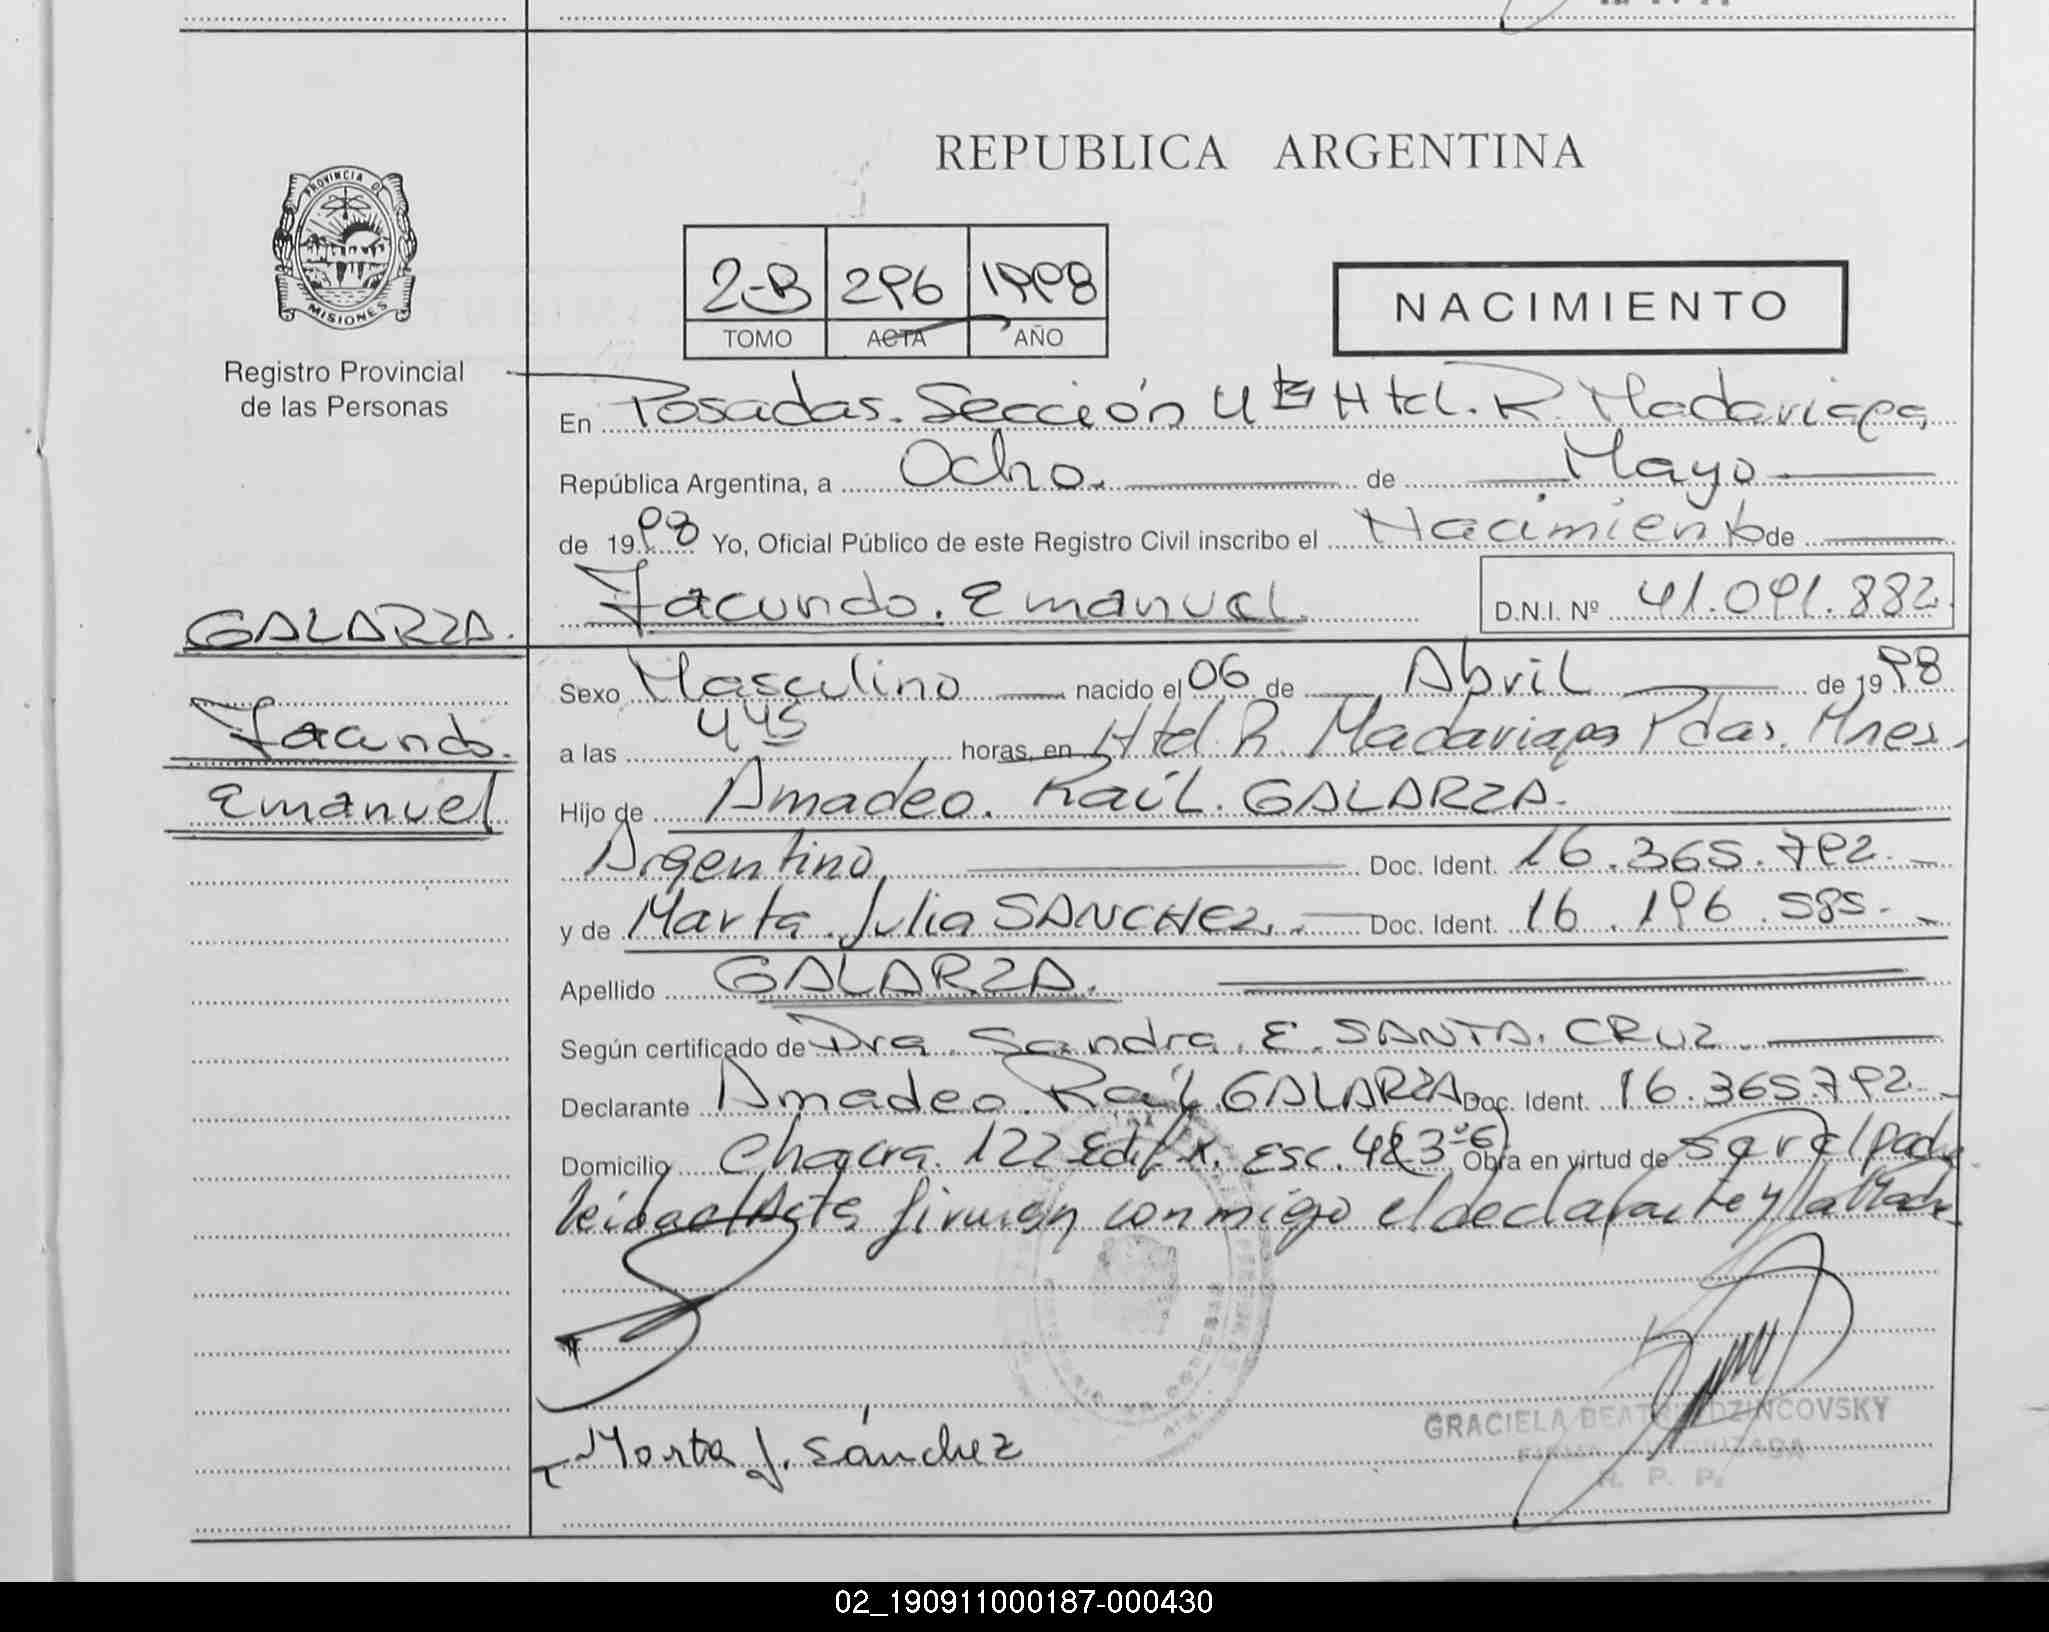 REPUBLICA ARGENTINA
PROVINCIA D
MISIONES
Registro Provincial
de las Personas
2-B 296 1998
TOMO ACTA AÑO
NACIMIENTO
En Posadas. Sección 4ta Htal. R. Madariaga,
República Argentina, a Ocho. de Mayo
de 1998 Yo, Oficial Público de este Registro Civil inscribo el Nacimiento de
Facundo. Emanuel. D.N.I. Nº 41.091.882.
GALARZA.
Facundo.
Emanuel
Sexo Masculino nacido el 06 de Abril de 1998
a las 445 horas, en Htal. R. Madariaga Pdas. Mnes.
Hijo de Amadeo. Raúl. GALARZA.
Argentino, Doc. Ident. 16.365.792.
y de Marta Julia SANCHEZ. Doc. Ident. 16.196.585.
Apellido GALARZA.
Según certificado de Dra. Sandra. E. SANTA. CRUZ.
Declarante Amadeo. Raúl. GALARZA Doc. Ident. 16.365.792.
Domicilio Chacra. 122 Edif. Esc. Obra en virtud de ser el padre
leida el Acta firman conmigo el declarante y la Madre
Marta J. Sánchez
GRACIELA BEATRIZ DZINCOVSKY
FIRMA AUTORIZADA
R. P. P.
02_190911000187-000430